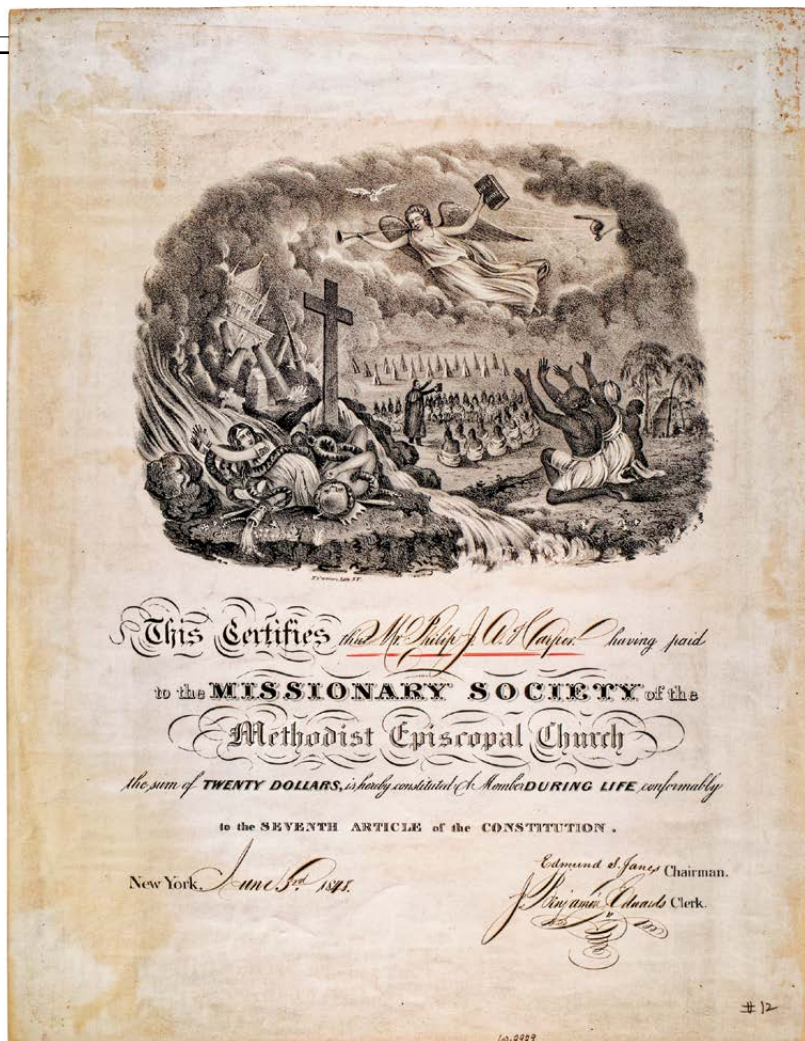 This Certifies that Mr. Philip J. A. Harper having paid
to the MISSIONARY SOCIETY of the
Methodist Episcopal Church
the sum of TWENTY DOLLARS, is hereby constituted A Member DURING LIFE, conformably
to the SEVENTH ARTICLE of the CONSTITUTION.
Edmund S. Janes Chairman.
New York, June 3rd 1848.
J. Benjamin Edwards Clerk.
# 12